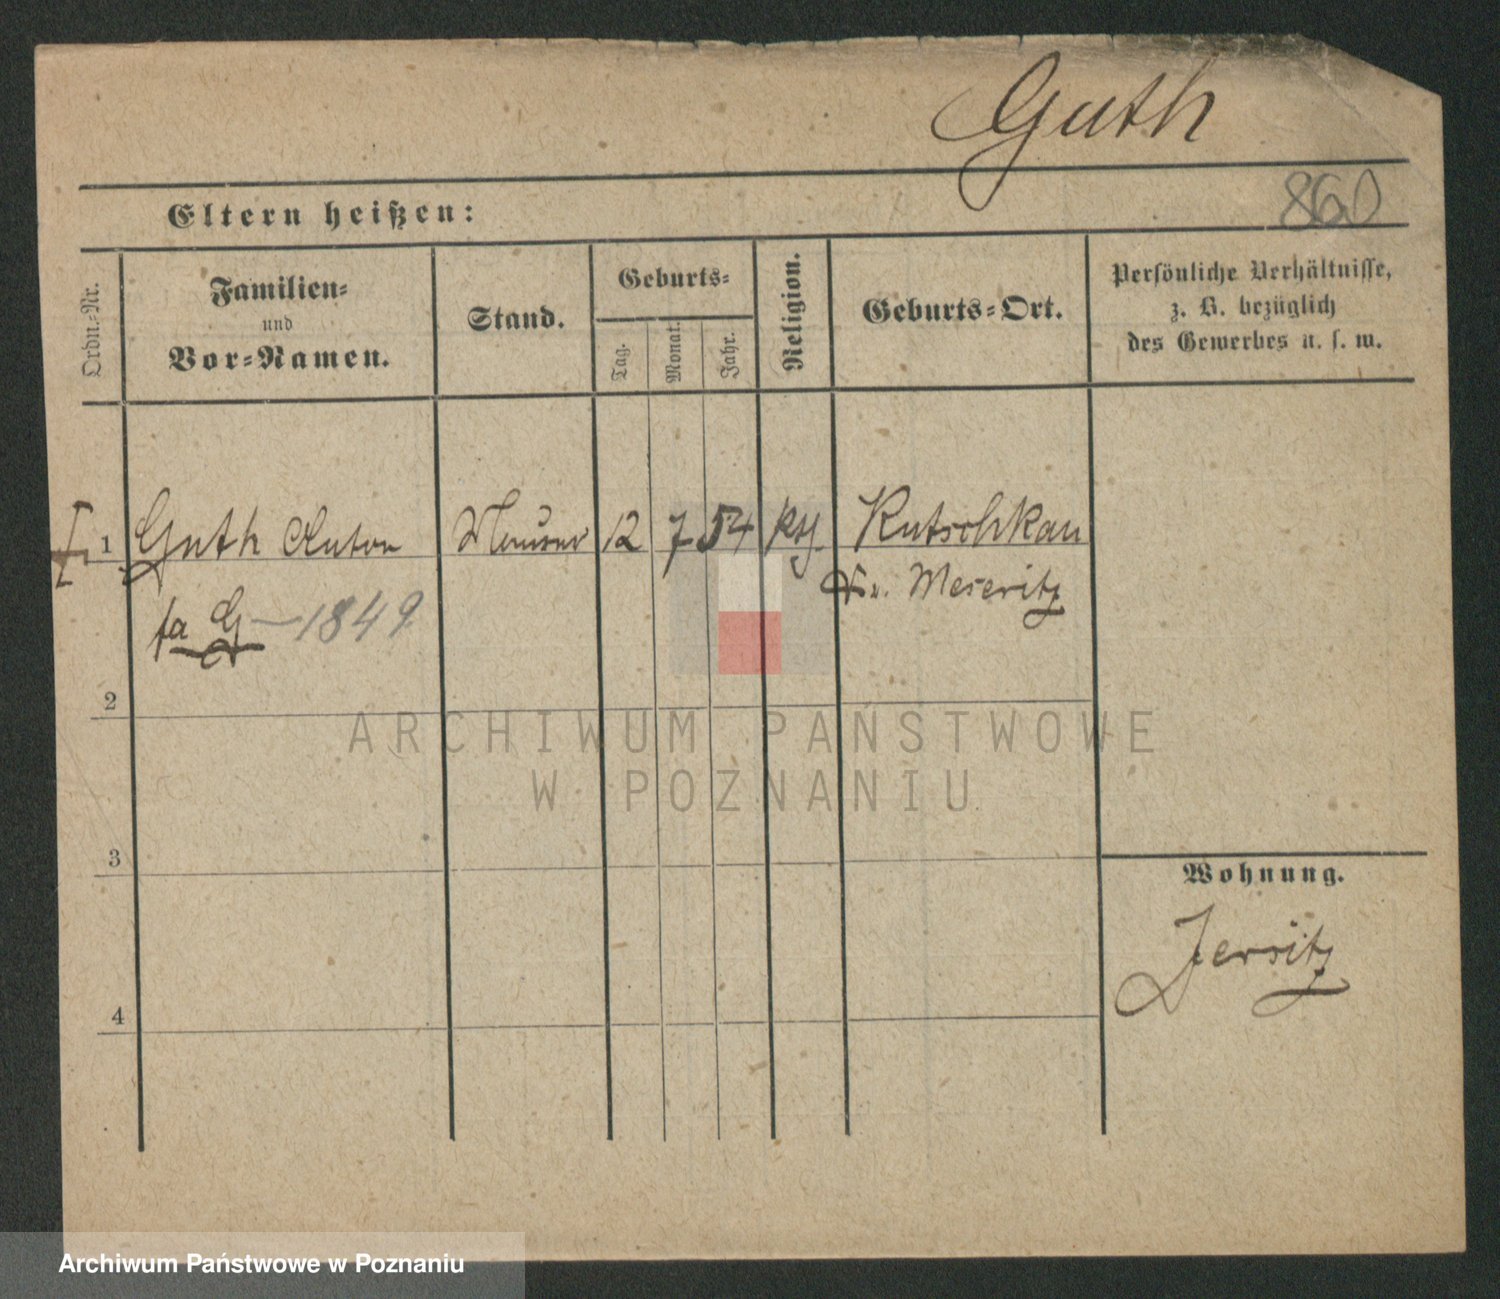 Guth
860
Eltern heißen:
Ordn.-Nr.
Familien-
und
Vor-Namen.
Stand.
Geburts-
Tag.
Monat.
Jahr.
Religion.
Geburts-Ort.
Persönliche Verhältnisse,
z. B. bezüglich
des Gewerbes u. s. w.
1 Guth Anton Maurer 12 7 54 ktĥ. Kutschkau
Kr. Meseritz
fa G - 1849
2
3
4
Wohnung.
Jersitz
ARCHIWUM PAŃSTWOWE
W POZNANIU
Archiwum Państwowe w Poznaniu